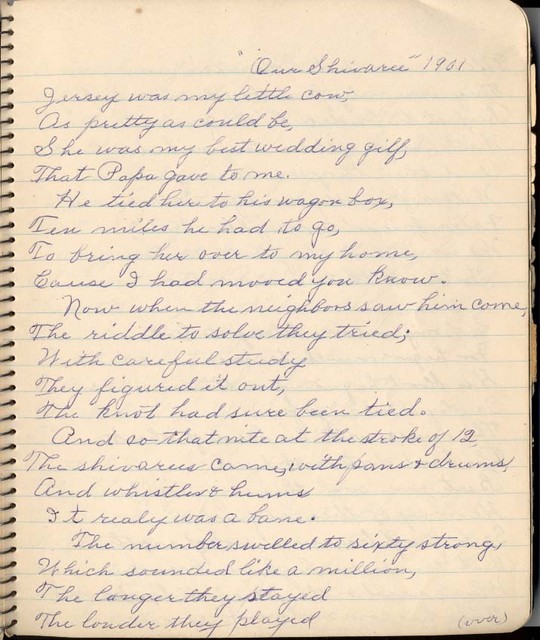 "Our Shivaree" 1901
Jersey was my little cow,
As pretty as could be,
She was my best wedding gift,
That Papa gave to me.
He tied her to his wagon box,
Ten miles he had to go,
To bring her over to my home,
Cause I had moved you know.
Now when the neighbors saw him come,
The riddle to solve they tried;
With careful study
They figured it out,
The knot had sure been tied.
And so that nite at the stroke of 12
The shivarees came, with pans & drums,
And whistles & hums
It realy was a bane.
The number swelled to sixty strong,
Which sounded like a million,
The longer they stayed
The louder they played
(over)